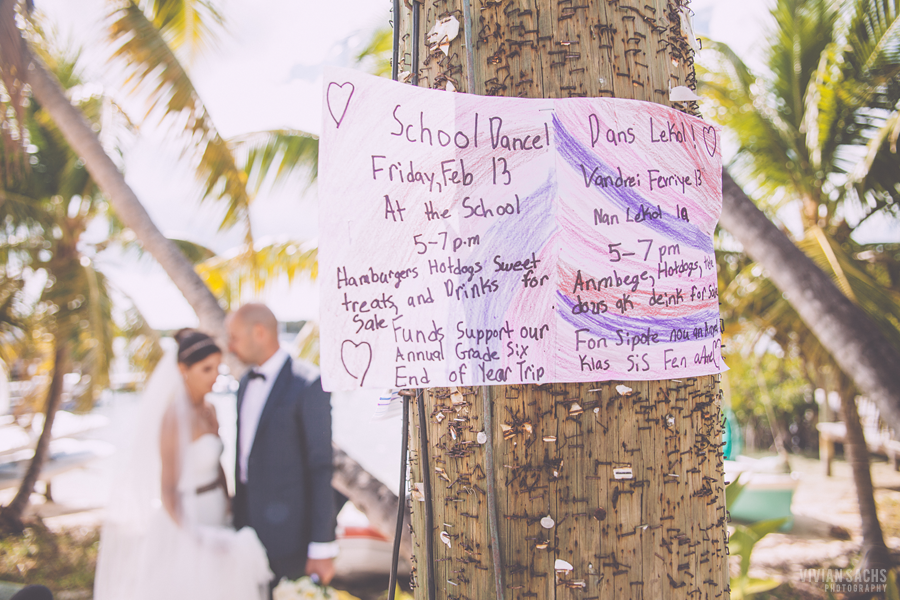 School Dance!
Friday, Feb 13
At the School
5-7 p.m
Hamburgers Hotdogs Sweet
treats, and Drinks for
Sale,
Funds Support our
Annual Grade Six
End of Year Trip
Dans Lekol!
Vandrei Fevriye 13
Nan Lekol la
5-7 pm
Anmbege, Hotdogs, the
dous ak deink for
Fon Sipote nou
Klas SiS Fen
VIVIAN SACHS
PHOTOGRAPHY